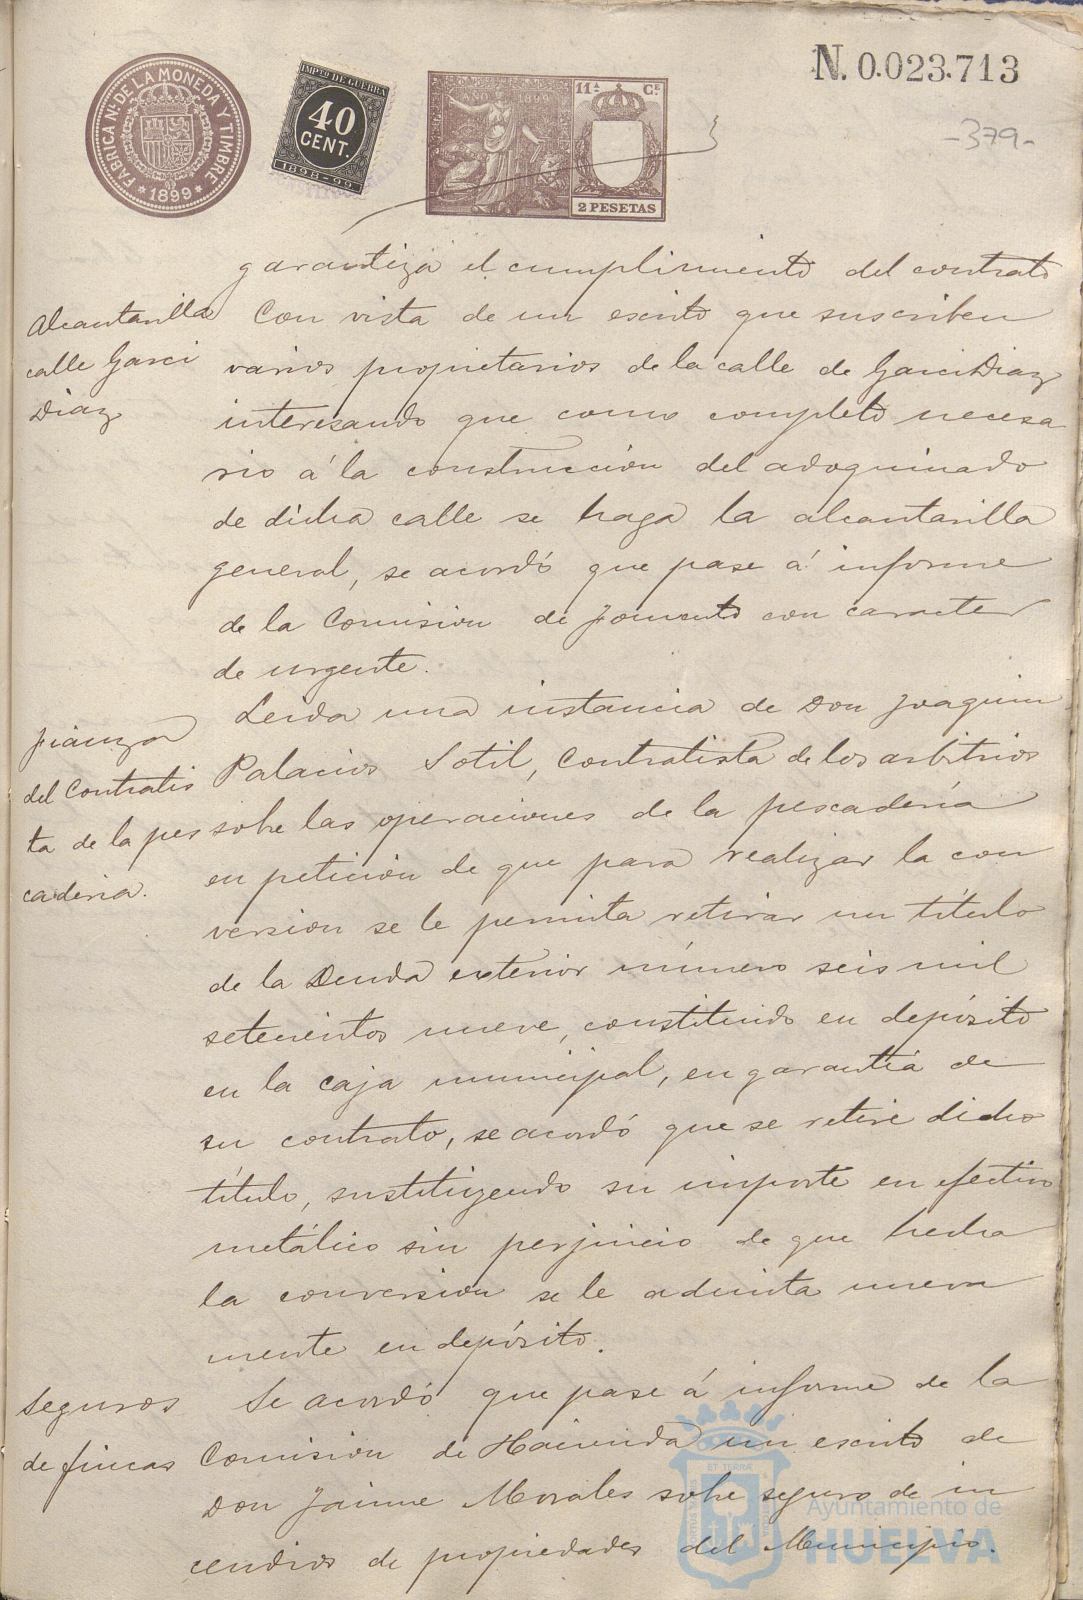 N. 0.023.713
-379-
FABRICA Nl. DE LA MONEDA Y TIMBRE
1899
IMPTO DE GUERRA
40
CENT.
1898-99
1899
11ª Cl.
2 PESETAS
garantiza el cumplimiento del contrato
Alcantarilla
calle Garci
Diaz
Con vista de un escrito que suscriben
varios propietarios de la calle de Garci Diaz
interesando que como completo necesa
rio á la construccion del adoquinado
de dicha calle se haga la alcantarilla
general, se acordó que pase á informe
de la Comision de Fomento con caracter
de urgente.
Fianza
del Contratis
ta de la pes
caderia.
Leida una instancia de Don Joaquin
Palacios Sotil, Contratista de los arbitrios
sobre las operaciones de la pescadería
en petición de que para realizar la con
version se le permita retirar un título
de la Deuda exterior número seis mil
setecientos nueve, constituido en depósito
en la caja municipal, en garantía de
su contrato, se acordó que se retire dicho
título, sustituyendo su importe en efectivo
metálico sin perjuicio de que hecha
la conversion se le admita nueva
mente en depósito.
Seguros
de fincas
Se acordó que pase á informe de la
Comision de Hacienda un escrito de
Don Jaime Morales sobre seguro de in
cendios de propiedades del Municipio.
ET TERRA
Ayuntamiento de
HUELVA